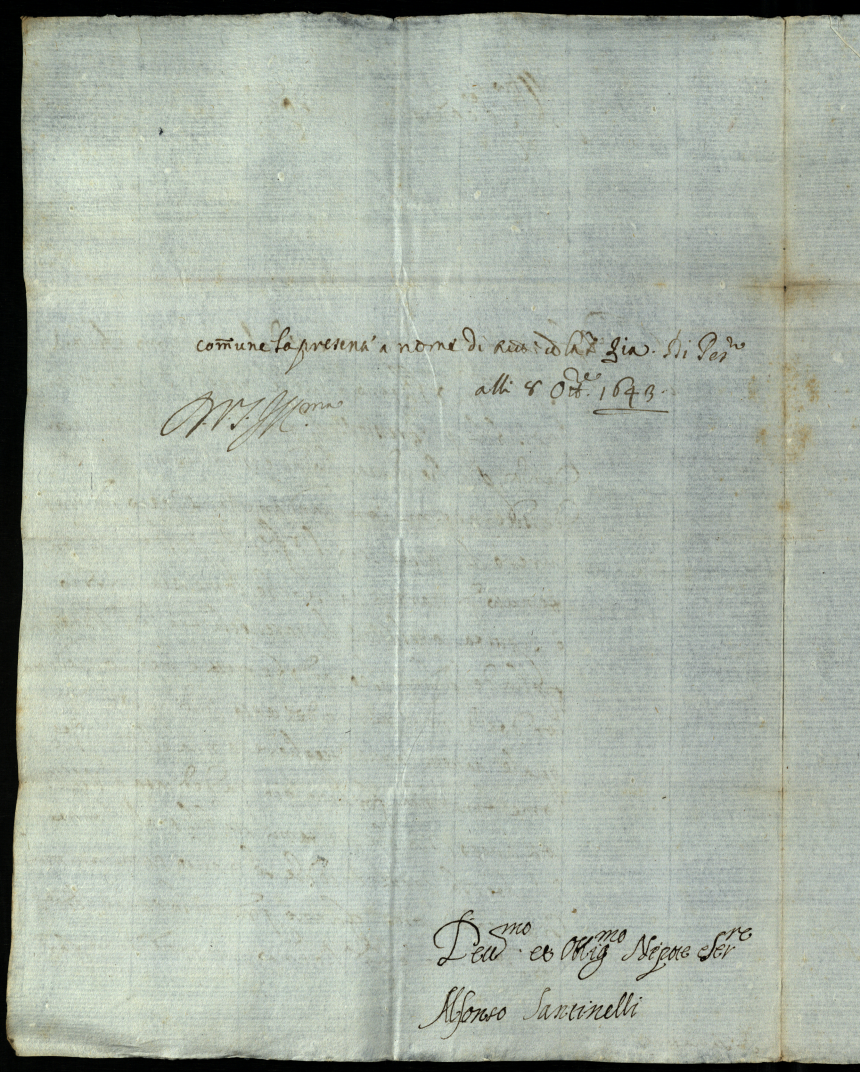 comune la presente a nome di della Zia. Di Pes.ro
alli 8 Ott.re 1643.
D. V. S. Ill.ma
Deu.mo et Obblig.mo Nipote e Ser.re
Alfonso Santinelli